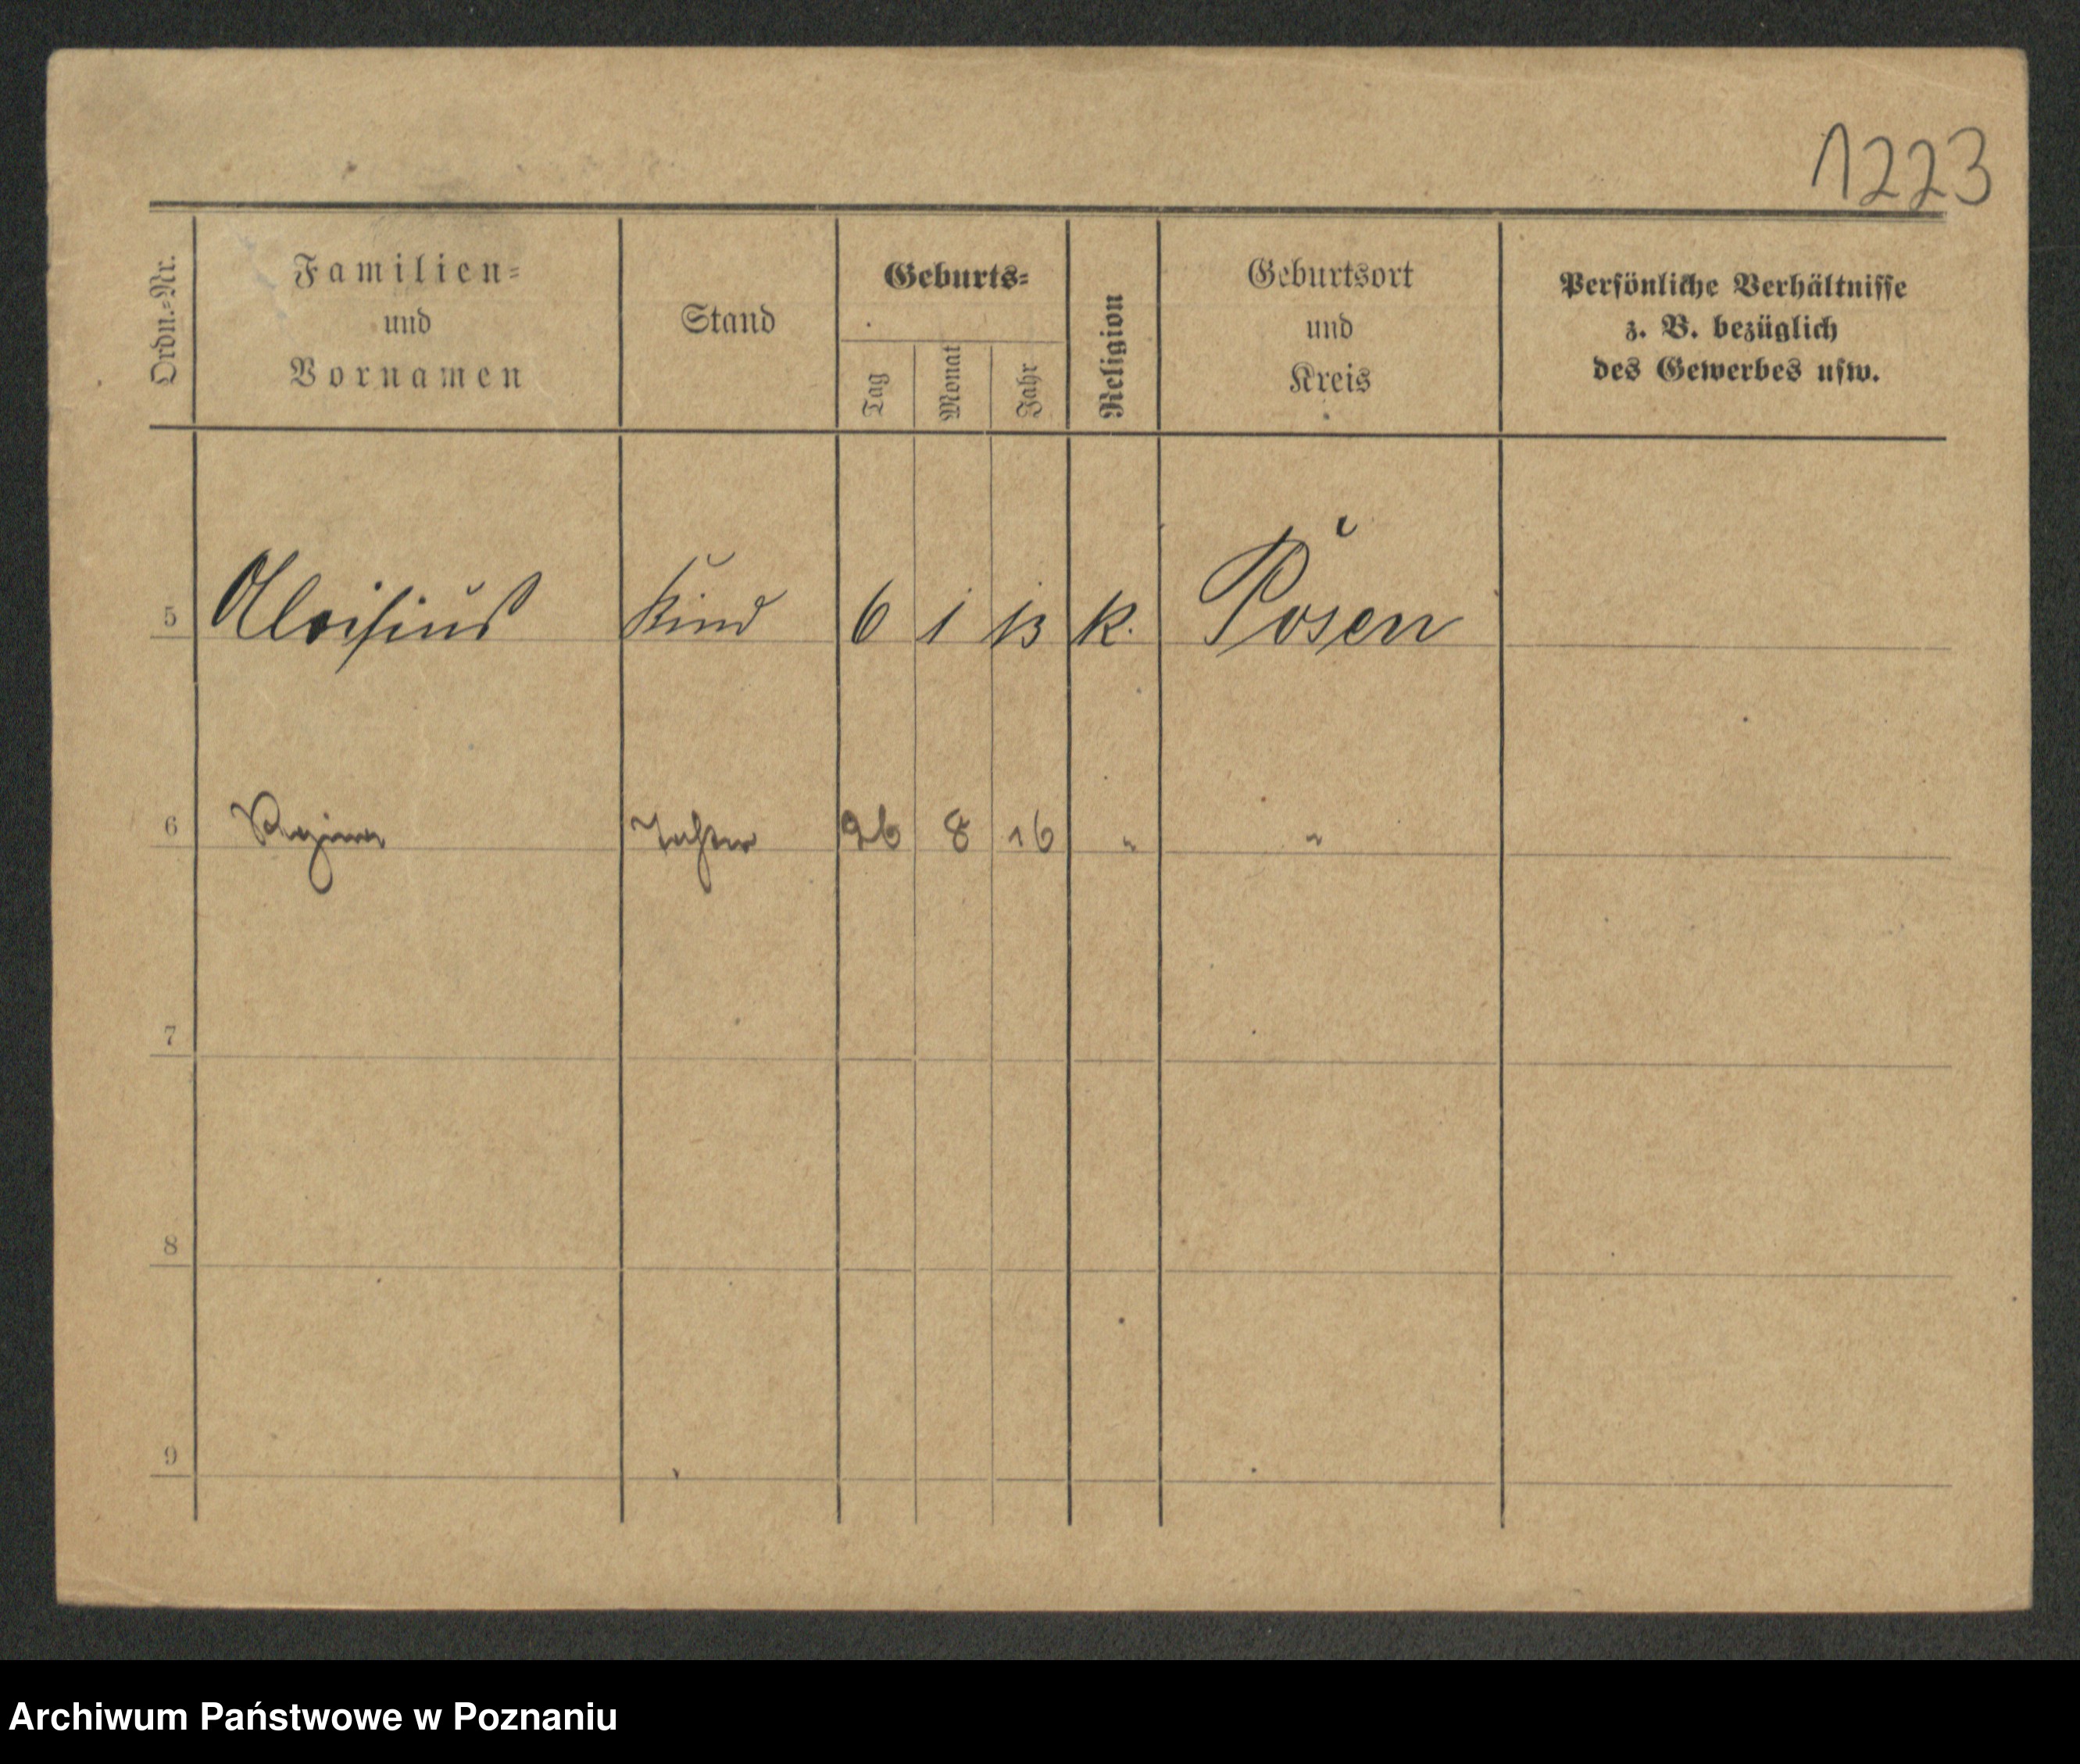 1223
Ordn.-Nr.
Familien-
und
Vornamen
Stand
Geburts-
Tag
Monat
Jahr
Religion
Geburtsort
und
Kreis
Persönliche Verhältnisse
z. B. bezüglich
des Gewerbes usw.
5 Aloisius Kind 6 1 13 K. Posen
6 Regina Tochter 26 8 16 " "
7
8
9
Archiwum Państwowe w Poznaniu